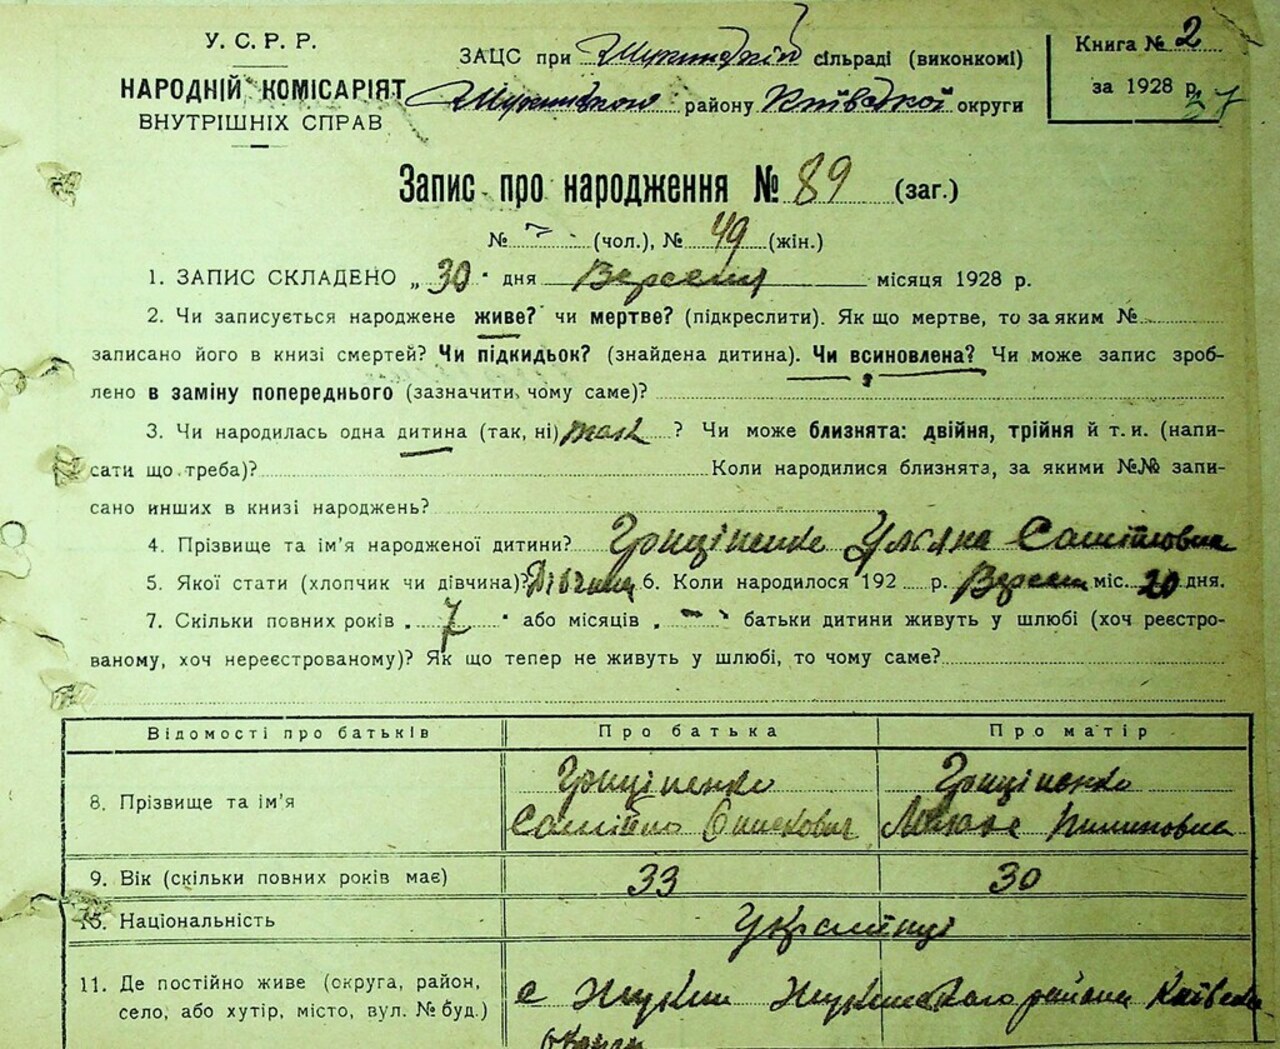 У. С. Р. Р.
НАРОДНІЙ КОМІСАРІЯТ
ВНУТРІШНІХ СПРАВ
ЗАЦС при Жукинській сільраді (виконкомі)
Жукинського району Київської округи
Книга № 2
за 1928 р.
57
Запис про народження № 89 (заг.)
№ - (чол.), № 49 (жін.)
1. ЗАПИС СКЛАДЕНО „30" дня Вересня місяця 1928 р.
2. Чи записується народжене живе? чи мертве? (підкреслити). Як що мертве, то за яким №
записано його в книзі смертей? Чи підкидьок? (знайдена дитина). Чи всиновлена? Чи може запис зроб-
лено в заміну попереднього (зазначити, чому саме)?
3. Чи народилась одна дитина (так, ні) так ? Чи може близнята: двійня, трійня й т. и. (напи-
сати що треба)? Коли народилися близнята, за якими №№ запи-
сано инших в книзі народжень?
4. Прізвище та ім'я народженої дитини? Гриціненко Уляна Самійловна
5. Якої стати (хлопчик чи дівчина)? Дівчина 6. Коли народилося 192 р. Вересня міс. 20 дня.
7. Скільки повних років „ 7 " або місяців „ - " батьки дитини живуть у шлюбі (хоч реєстро-
ваному, хоч нереєстрованому)? Як що тепер не живуть у шлюбі, то чому саме?
Відомості про батьків Про батька Про матір
8. Прізвище та ім'я Гриціненко Гриціненко
Самійло Пилиповна
9. Вік (скільки повних років має) 33 30
10. Національність Українці
11. Де постійно живе (округа, район,
село, або хутір, місто, вул. № буд.)
с Жукин Жукинського района Київської
округи